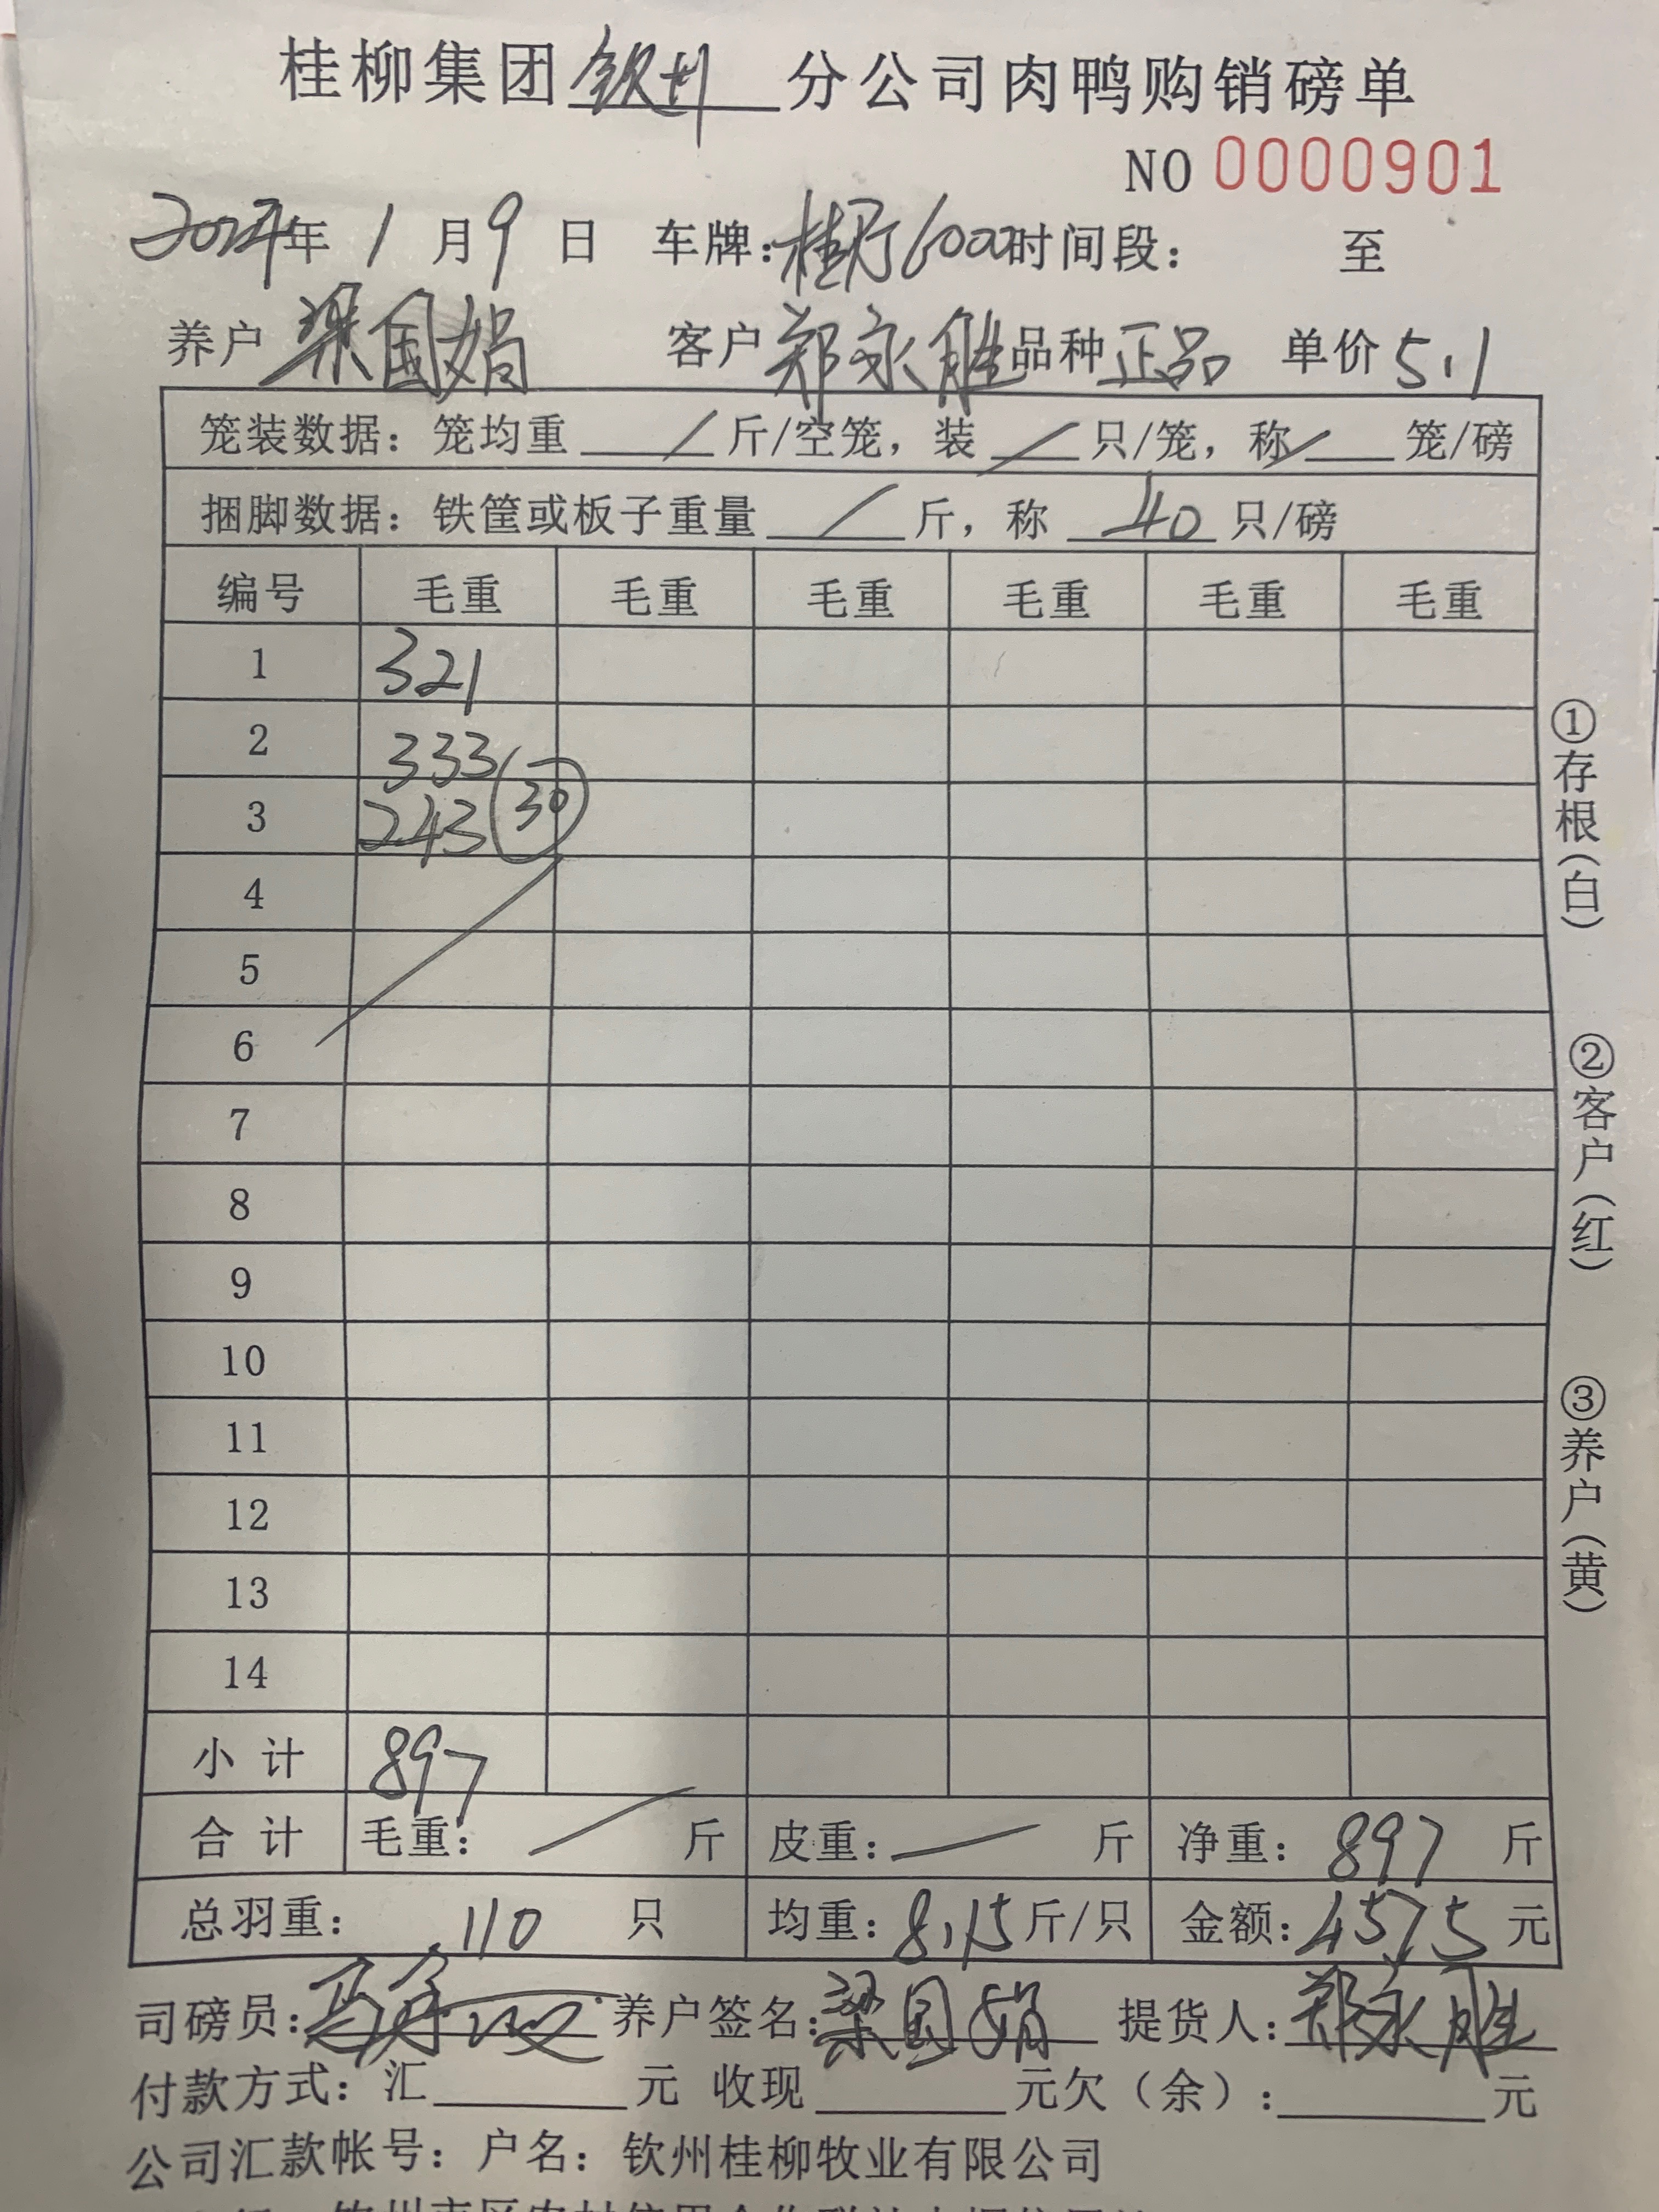 桂柳集团钦州分公司肉鸭购销磅单
NO 0000901
2024年1月9日 车牌: 时间段: 至
养户 梁国娟 客户 郑永胜 品种 正品 单价 5.1
笼装数据: 笼均重 / 斤/空笼, 装 / 只/笼, 称 / 笼/磅
捆脚数据: 铁筐或板子重量 / 斤, 称 40 只/磅
编号 毛重 毛重 毛重 毛重 毛重 毛重
1 321
2 333
3 243 (30)
4
5
6
7
8
9
10
11
12
13
14
小计 897
合计 毛重: / 斤 皮重: / 斤 净重: 897 斤
总羽重: 110 只 均重: 8.15 斤/只 金额: 4575 元
司磅员: 养户签名: 梁国娟 提货人: 郑永胜
付款方式: 汇 元 收现 元欠(余): 元
公司汇款帐号: 户名: 钦州桂柳牧业有限公司
①存根(白)
②客户(红)
③养户(黄)